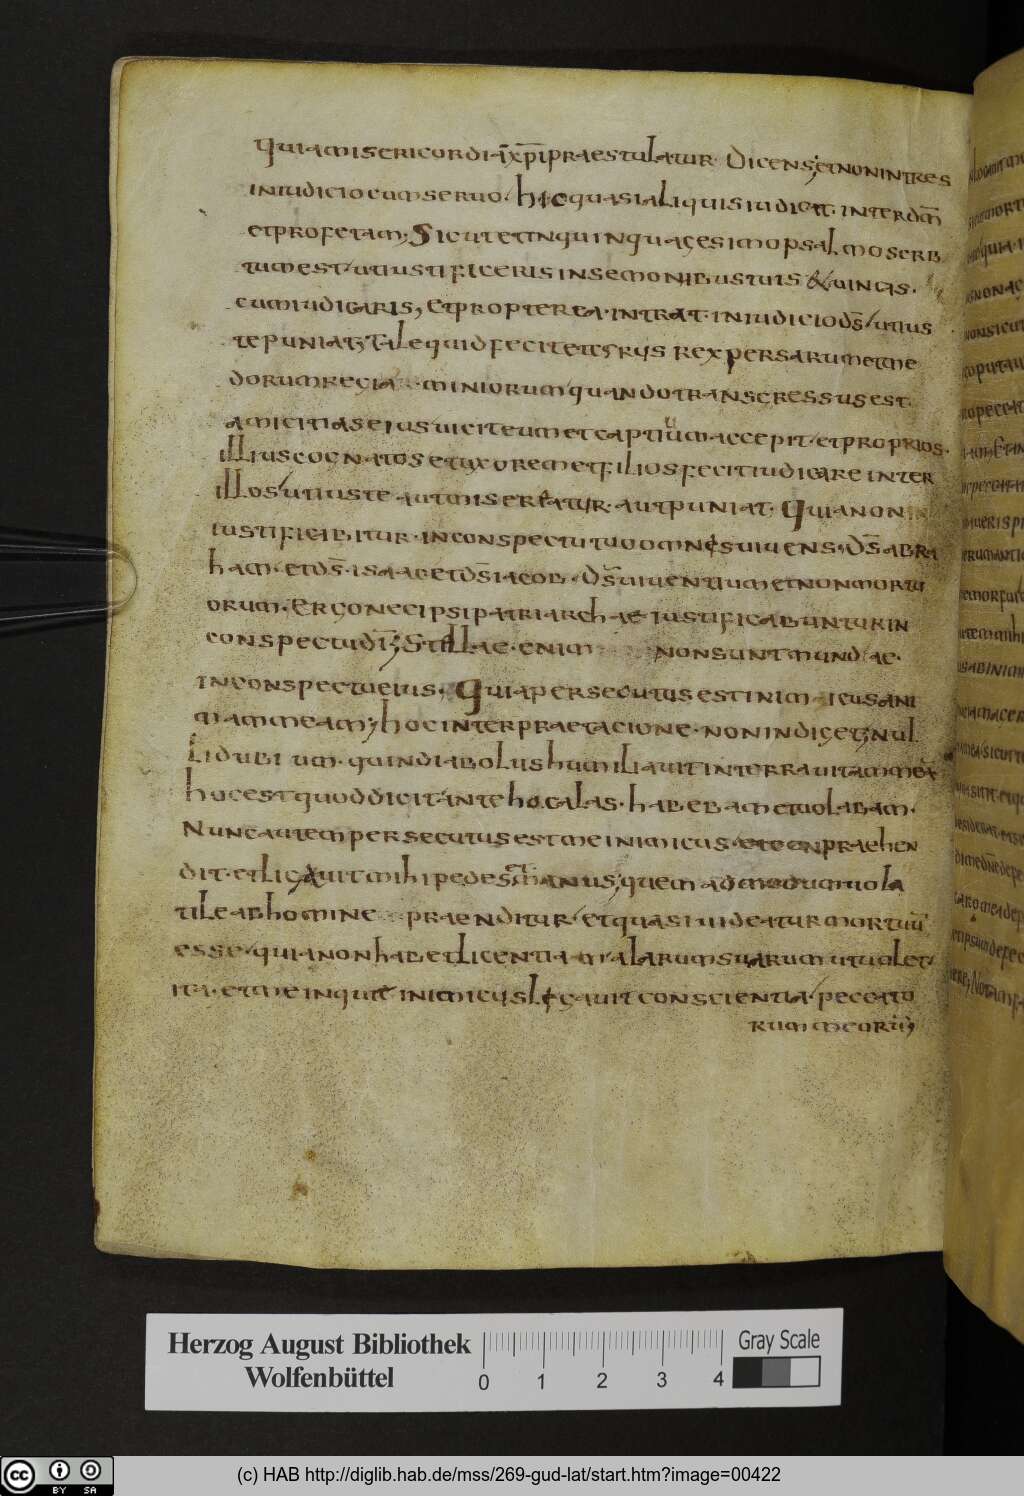 quia misericordia xp̄i praestulatur. Dicens; et non intres
in iudicio cum seruo. hic quasi aliquis iudicat. interdm̄
et profetam; Sicut et in quinquagesimo psalmo scrib
tum est/ ut iustificeris in semonibus tuis & uincas.
cum iudicaris, et propterea. intrat. in iudicio ds̄/ ut ius
te puniat; Tale quid fecit et cyrus rex persarum et me
dorum regia miniorum/ quando transgressus est.
amicitias eius uicit eum et captiuum accepit. et proprios.
illius cognatos et uxorem et filios fecit iudicare inter
illos/ ut iuste aut misereatur. aut puniat. Quia non
iustificabitur. in conspectu tuo omnes uiuens. ds̄ abra
ham. et ds̄. isaac et ds̄ iacob. ds̄ uiuentium et non mortu
orum. Ergo nec ipsi patriarchae iustificabuntur in
conspectu di; Stellae. enim non sunt mundae.
in conspectu eius. Quia persecutus est inimicus ani
mam meam; hoc interpraetacione. non indiget; nul
li dubium. quin diabolus humiliauit in terra uitam mea
hoc est quod dicit/ ante hocalas. habebam et uolabam.
Nunc autem persecutus est me inimicus. et praehen
dit. et ligauit mihi pedes manus; quem ad modum uola
tile ab homine praenditur/ et quasi uideatur mortuū
esse/ quia non habet licentiam alarum suarum ut uolet/
ita. et me inquit inimicus ligauit conscientia/ peccato
rum meorū
Herzog August Bibliothek
Wolfenbüttel
0 1 2 3 4
Gray Scale
cc BY SA
(c) HAB http://diglib.hab.de/mss/269-gud-lat/start.htm?image=00422